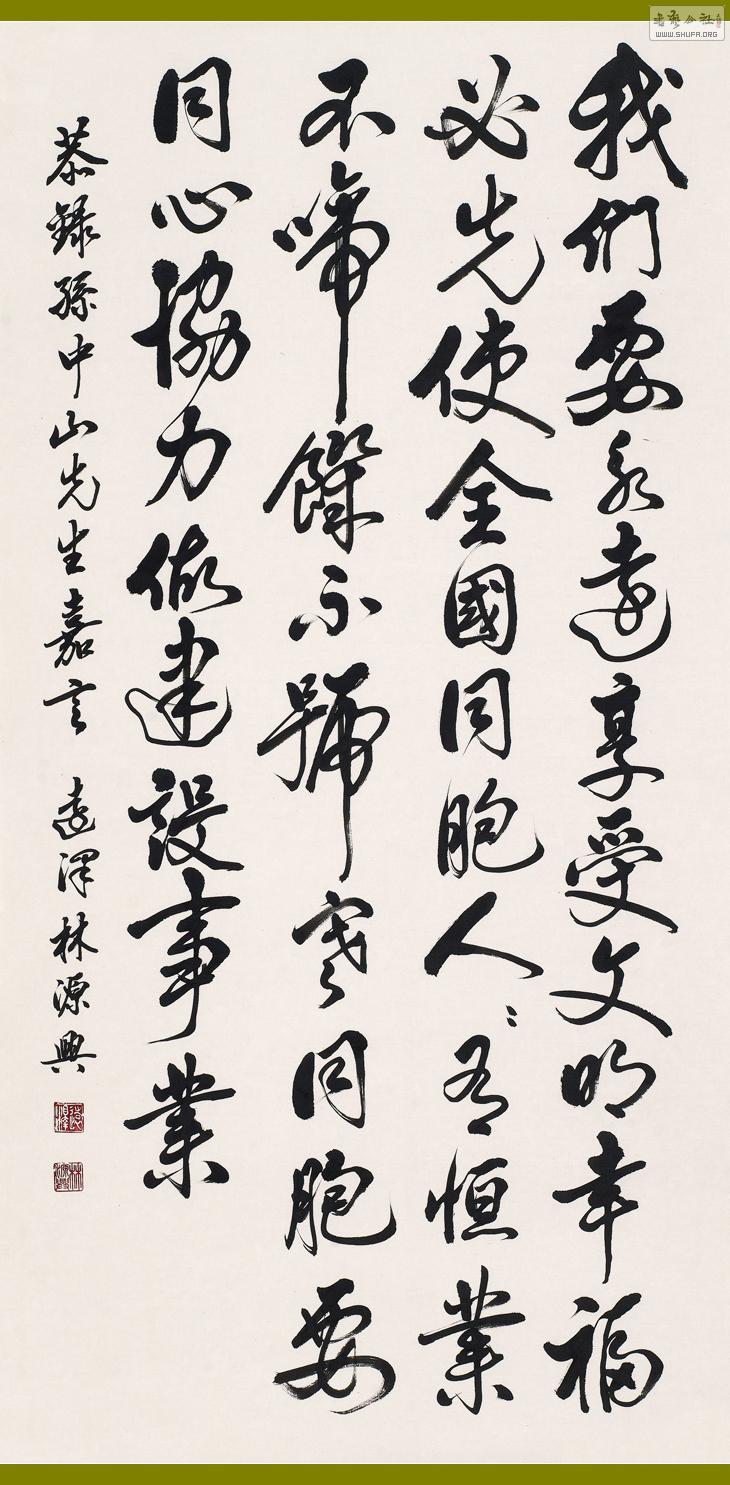 我們要永遠享受文明幸福
必先使全國同胞人〻有恒業
不啼饑不號寒同胞要
同心協力做建設事業
恭錄孫中山先生嘉言 遠澤林源興
書藝公社
WWW.SHUFA.ORG